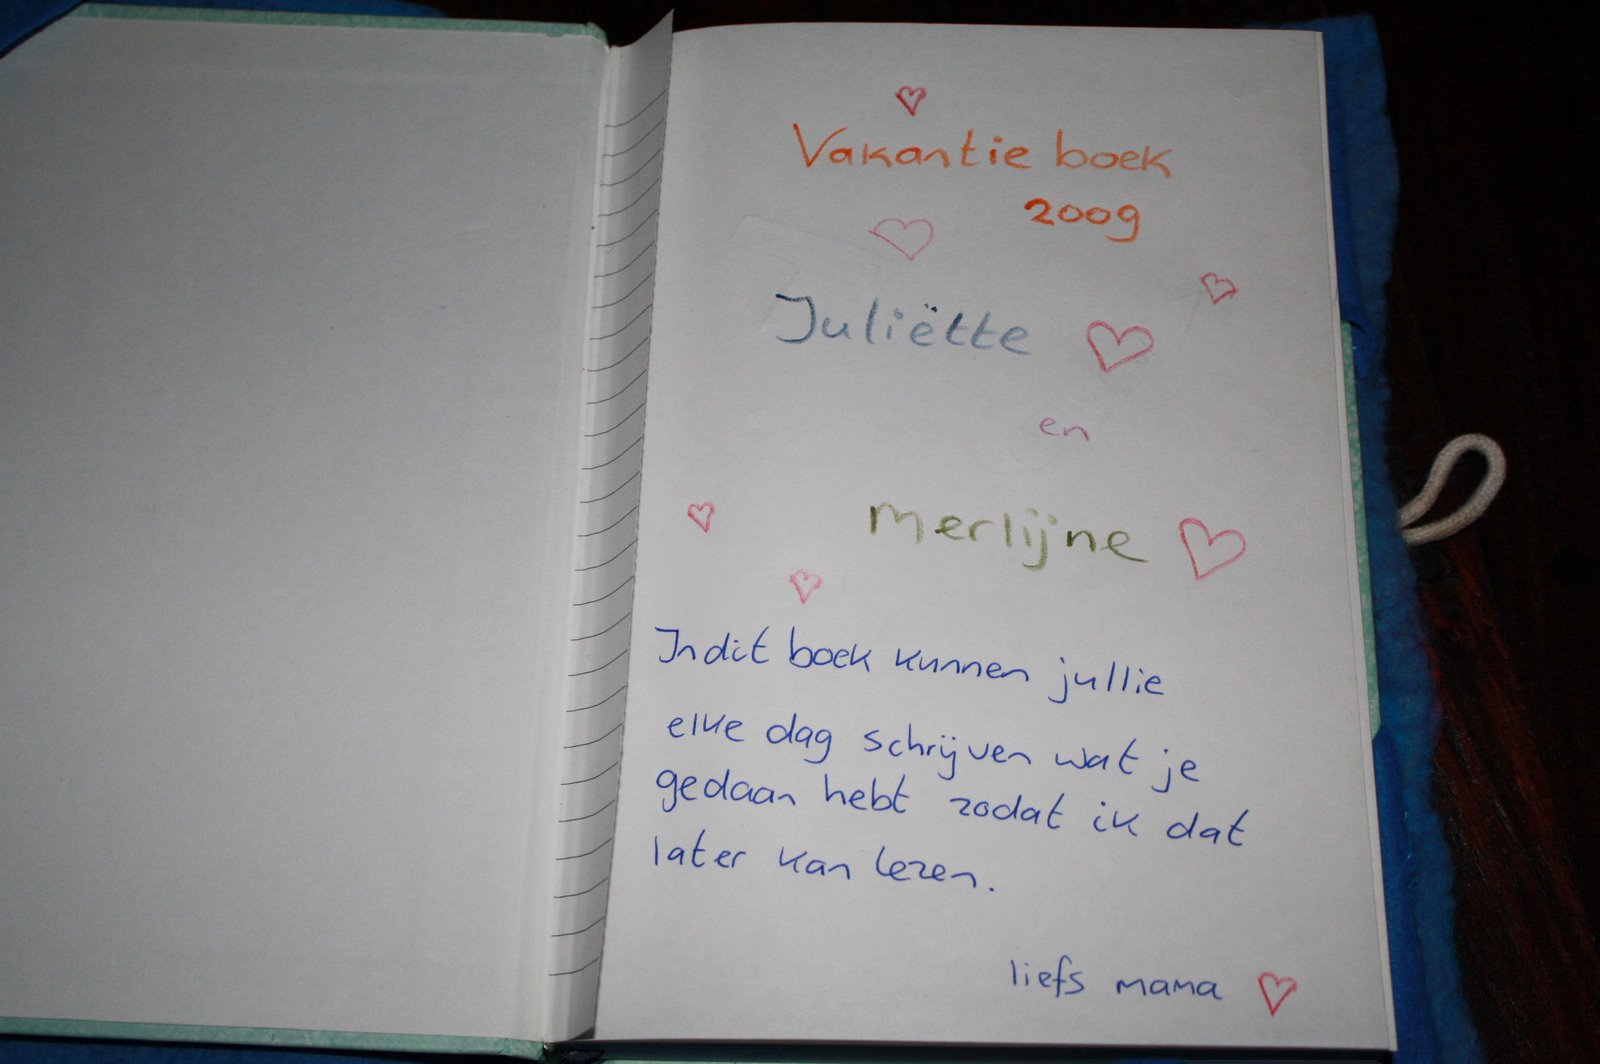 Vakantie boek
2009
Juliëtte
en
Merlijne
In dit boek kunnen jullie
elke dag schrijven wat je
gedaan hebt zodat ik dat
later kan lezen.
liefs mama